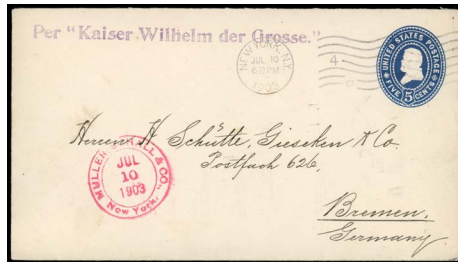 Per "Kaiser Wilhelm der Grosse."
NEW YORK, N.Y.
JUL 10
PM
1903
4
UNITED STATES POSTAGE
FIVE 5 CENTS
Herren H Schütte, Gieseken & Co.
Postfach 626,
Bremen,
Germany
MULLER & CO.
JUL
10
1903
New York.